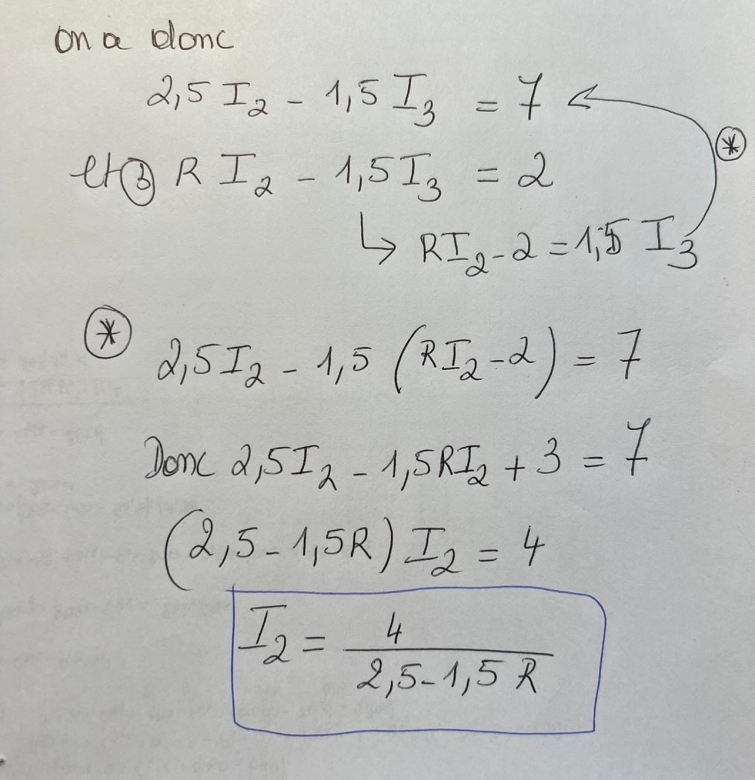 on a donc
2,5 I₂ - 1,5 I₃ = 7
et ③ R I₂ - 1,5 I₃ = 2
⊛
↳ RI₂ - 2 = 1,5 I₃
⊛ 2,5 I₂ - 1,5 (RI₂ - 2) = 7
Donc 2,5 I₂ - 1,5 RI₂ + 3 = 7
(2,5 - 1,5 R) I₂ = 4
I₂ = 4 / (2,5 - 1,5 R)